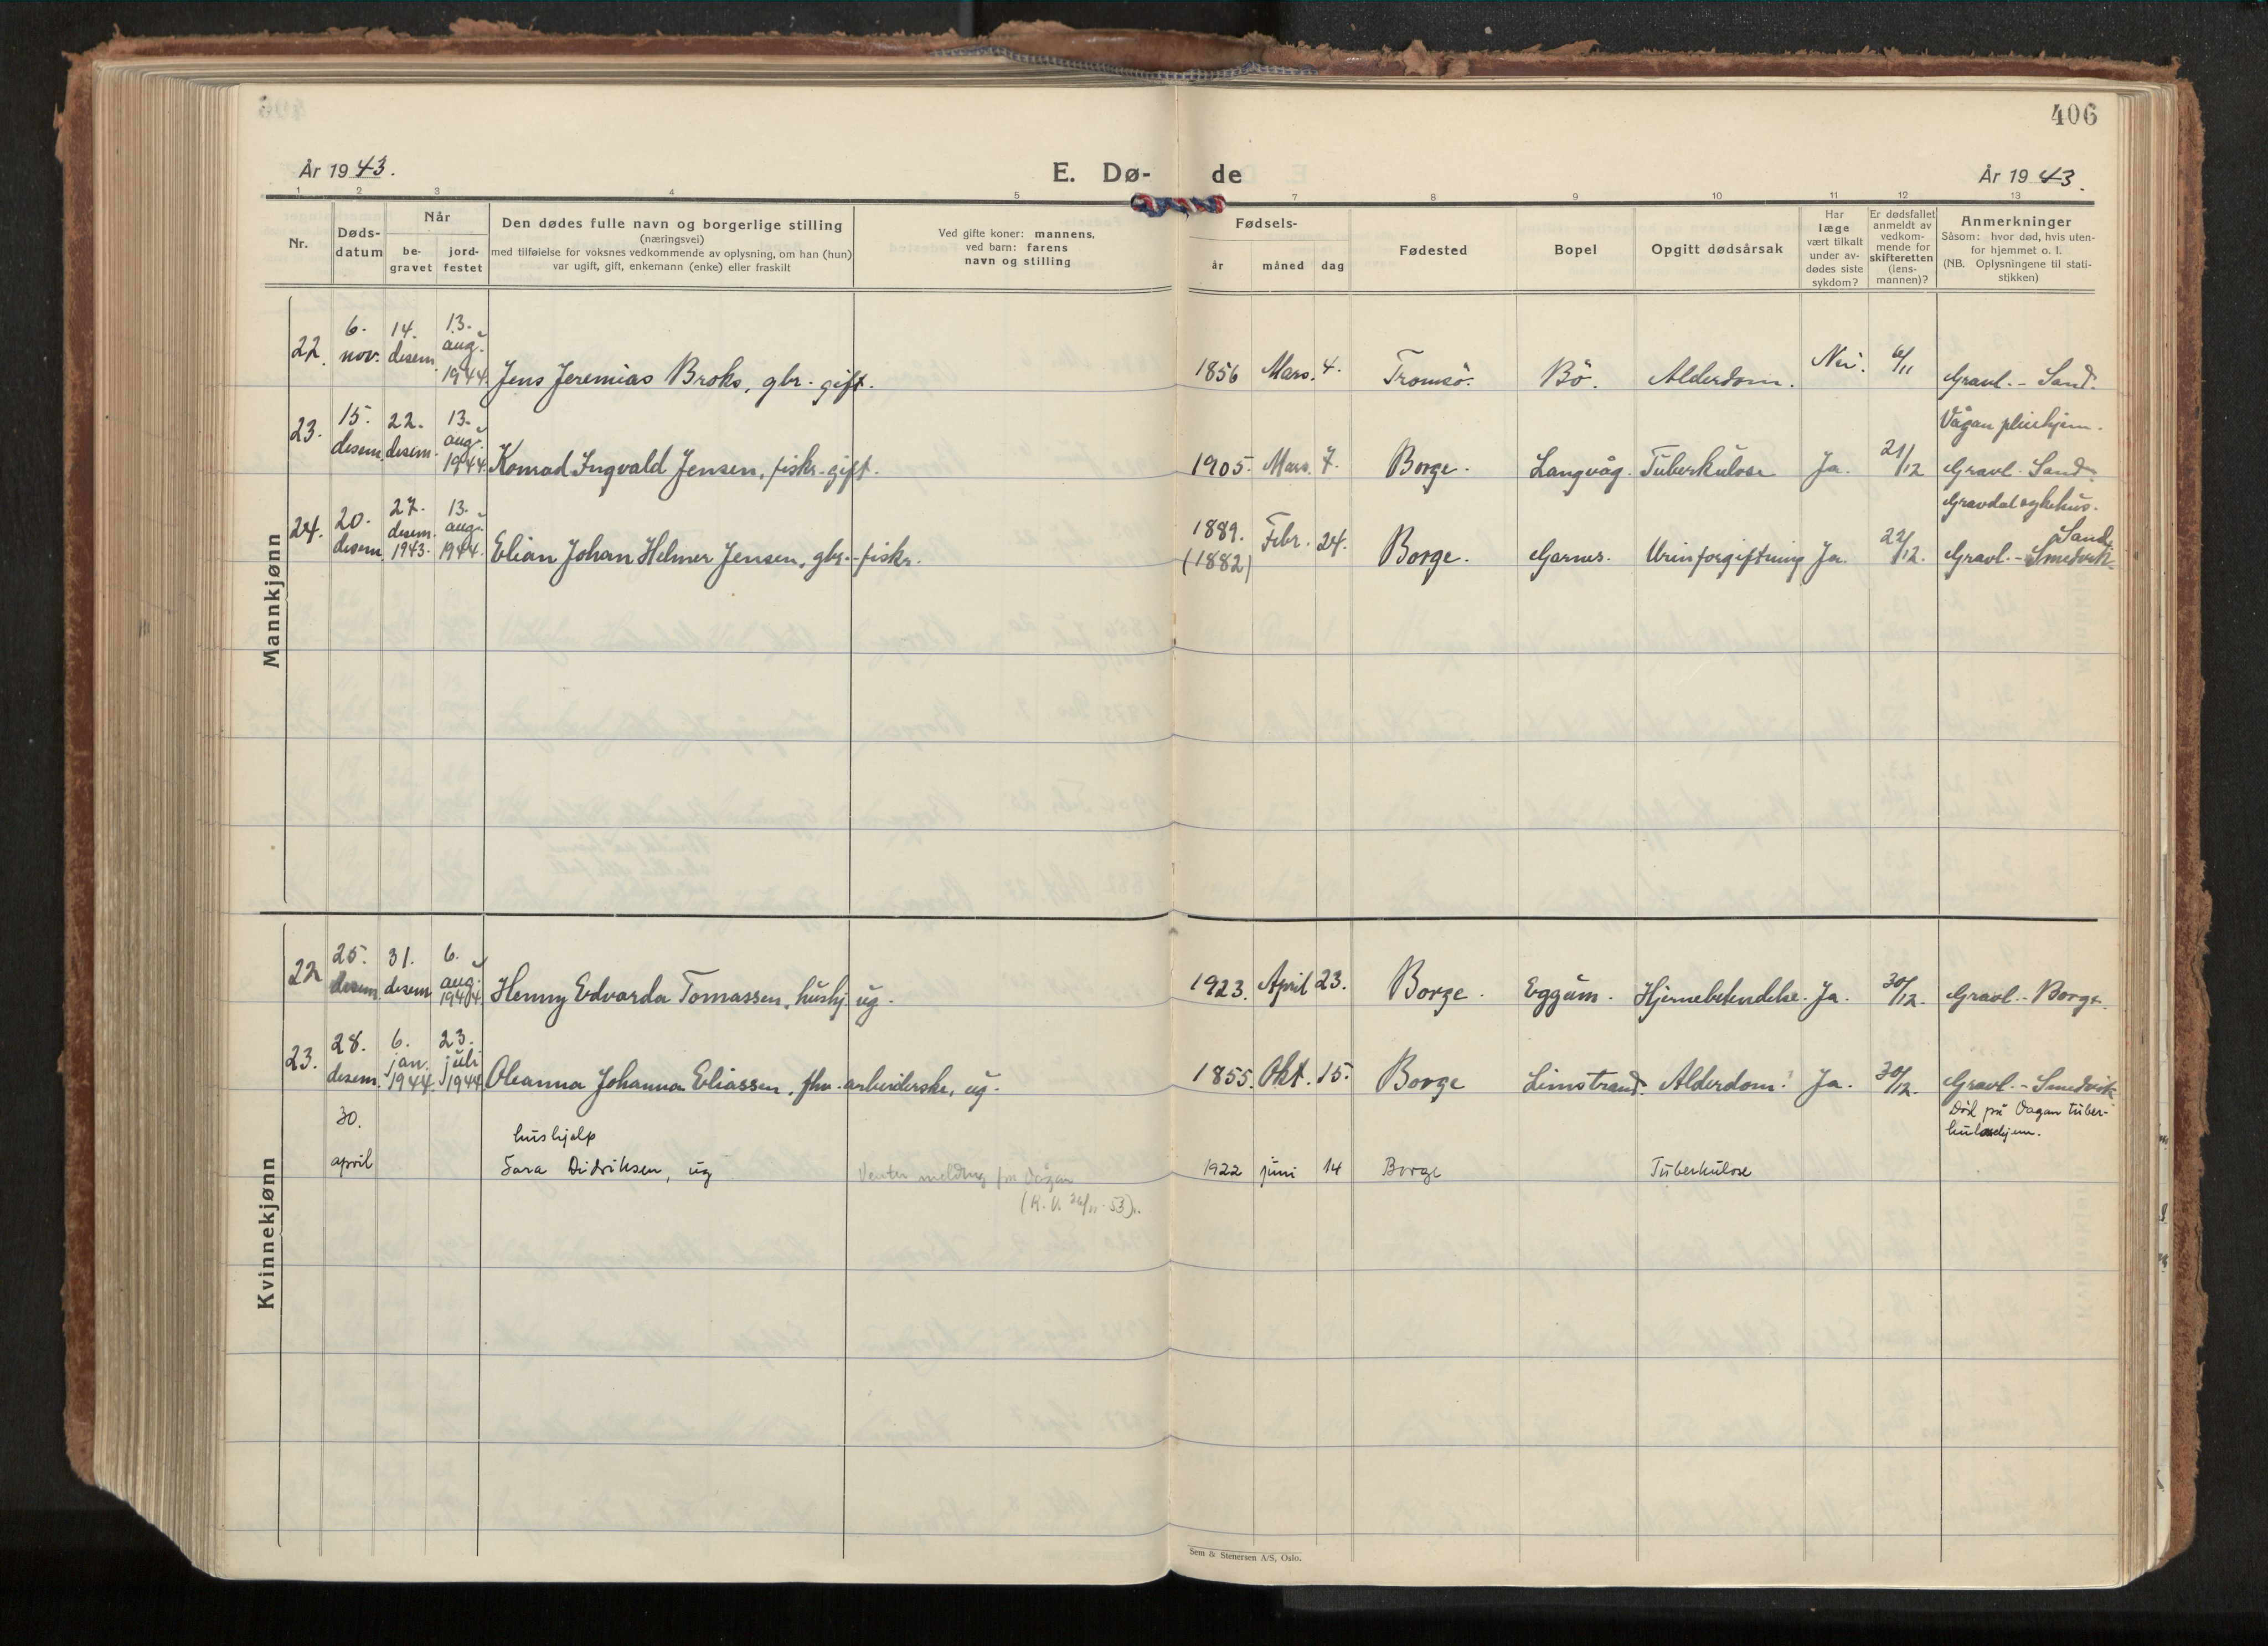 406
År 1943.
E. Dø- de
År 1943.
1 2 3 4 5 7 8 9 10 11 12 13
Nr.
Døds-
datum
Når
be-
gravet
jord-
festet
Den dødes fulle navn og borgerlige stilling
(næringsvei)
med tilføielse for voksnes vedkommende av oplysning, om han (hun)
var ugift, gift, enkemann (enke) eller fraskilt
Ved gifte koner: mannens,
ved barn: farens
navn og stilling
Fødsels-
år måned dag
Fødested
Bopel
Opgitt dødsårsak
Har
læge
vært tilkalt
under av-
dødes siste
sykdom?
Er dødsfallet
anmeldt av
vedkom-
mende for
skifteretten
(lens-
mannen)?
Anmerkninger
Såsom: hvor død, hvis uten-
for hjemmet o. l.
(NB. Oplysningene til stati-
stikken)
Mannkjønn
22. 6. nov. 14. desem. 13. aug. 1944. Jens Jeremias Broks, gbr. gift. 1856 Mars. 4. Tromsö. Bö. Alderdom. Nei. 6/11 Gravl. - Sand.
Vågan pleiehjem.
23. 15. desem. 22. desem. 13. aug. 1944. Konrad Ingvald Jensen, fiskr. gift. 1905. Mars. 7. Borge. Langvåg. Tuberkulose Ja. 21/12 Gravl. Sand.
Gravdal sykehus.
24. 20. desem. 27. desem. 1943. 13. aug. 1944. Elian Johan Helmer Jensen, gbr. - fiskr. 1889. (1882) Febr. 24. Borge. Garnes. Urinforgiftning Ja. 22/12. Gravl. - Smedvik Sand.
Kvinnekjønn
22 25. desem. 31. desem 6. aug. 1944. Henny Edvarda Tomassen, hushj. ug. 1923. April 23. Borge. Eggum. Hjernebetendelse. Ja. 30/12. Gravl. - Borge.
23. 28. desem. 6. jan. 1944. 23. juli 1944 Oleanna Johanna Eliassen, fhv. arbeiderske, ug. 1855. Okt. 15. Borge Limstrand. Alderdom. Ja. 30/12. Gravl. - Smedvik
Död på Vågan tuber-
kulosehjem.
30.
april
hushjelp
Sara Didriksen, ug
Venter melding fra Vågan
(R. V. 26/11-53).
1922 juni 14 Borge Tuberkulose
Sem & Stenersen A/S, Oslo.